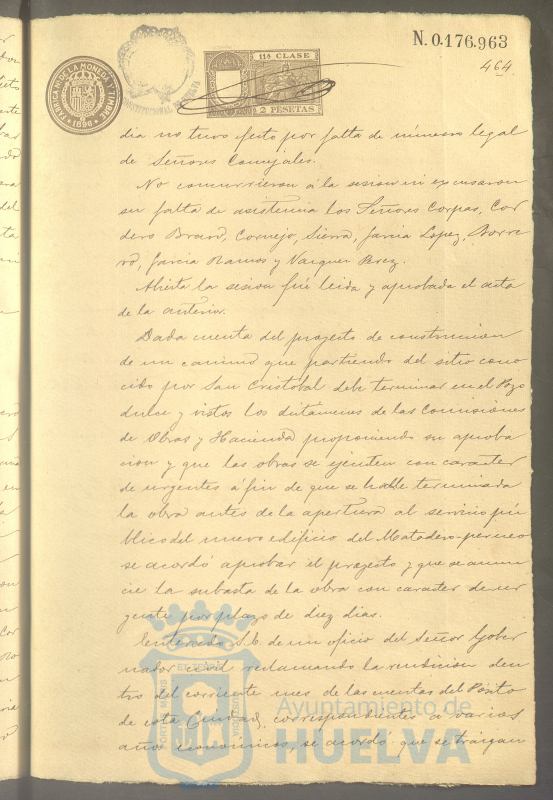 N. 0.176.963
464
FABRICA NL DE LA MONEDA Y TIMBRE
1896
CONSTITUCIONAL
11ª CLASE
2 PESETAS
dia no tuvo efecto por falta de número legal
de Señores Concejales.
No concurrieron á la sesion ni excusaron
su falta de asistencia los Señores Corpas, Cor
dero Bravo, Cornejo, Sierra, Garcia Lopez, Borre
ro, Garcia Ramos y Vazquez Perez.
Abierta la sesion fué leida y aprobada el acta
de la anterior.
Dada cuenta del proyecto de construccion
de un camino que partiendo del sitio cono
cido por San Cristobal debe terminar en el Pozo
dulce y vistos los dictamenes de las Comisiones
de Obras y Hacienda proponiendo su aproba
cion y que las obras se ejecuten con caracter
de urgentes á fin de que se halle terminada
la obra antes de la apertura al servicio pú
blico del nuevo edificio del Matadero
se acordó aprobar el proyecto y que se anun
cie la subasta de la obra con caracter de ur
gente por plazo de diez dias.
Enterado S.C. de un oficio del Señor Gober
nador civil reclamando la rendicion den
tro del corriente mes de las cuentas del Pósito
de esta Ciudad, correspondientes á varios
años económicos, se acordó que se traigan
PORTUS MARIS ET TERRAE CUSTODIA
Ayuntamiento de
HUELVA